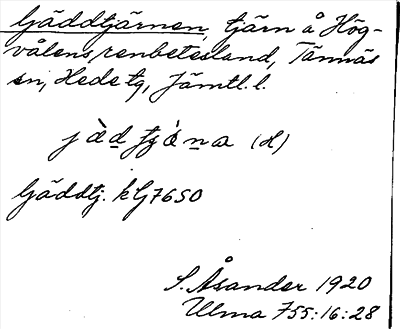 Gäddtjärnen, tjärn å Hög-
vålens renbetesland, Tännäs
sn, Hede tg, Jämtl. l.
jàd tjána (H)
Gäddtj. kG7650
S. Åsander 1920
Ulma 755:16:28